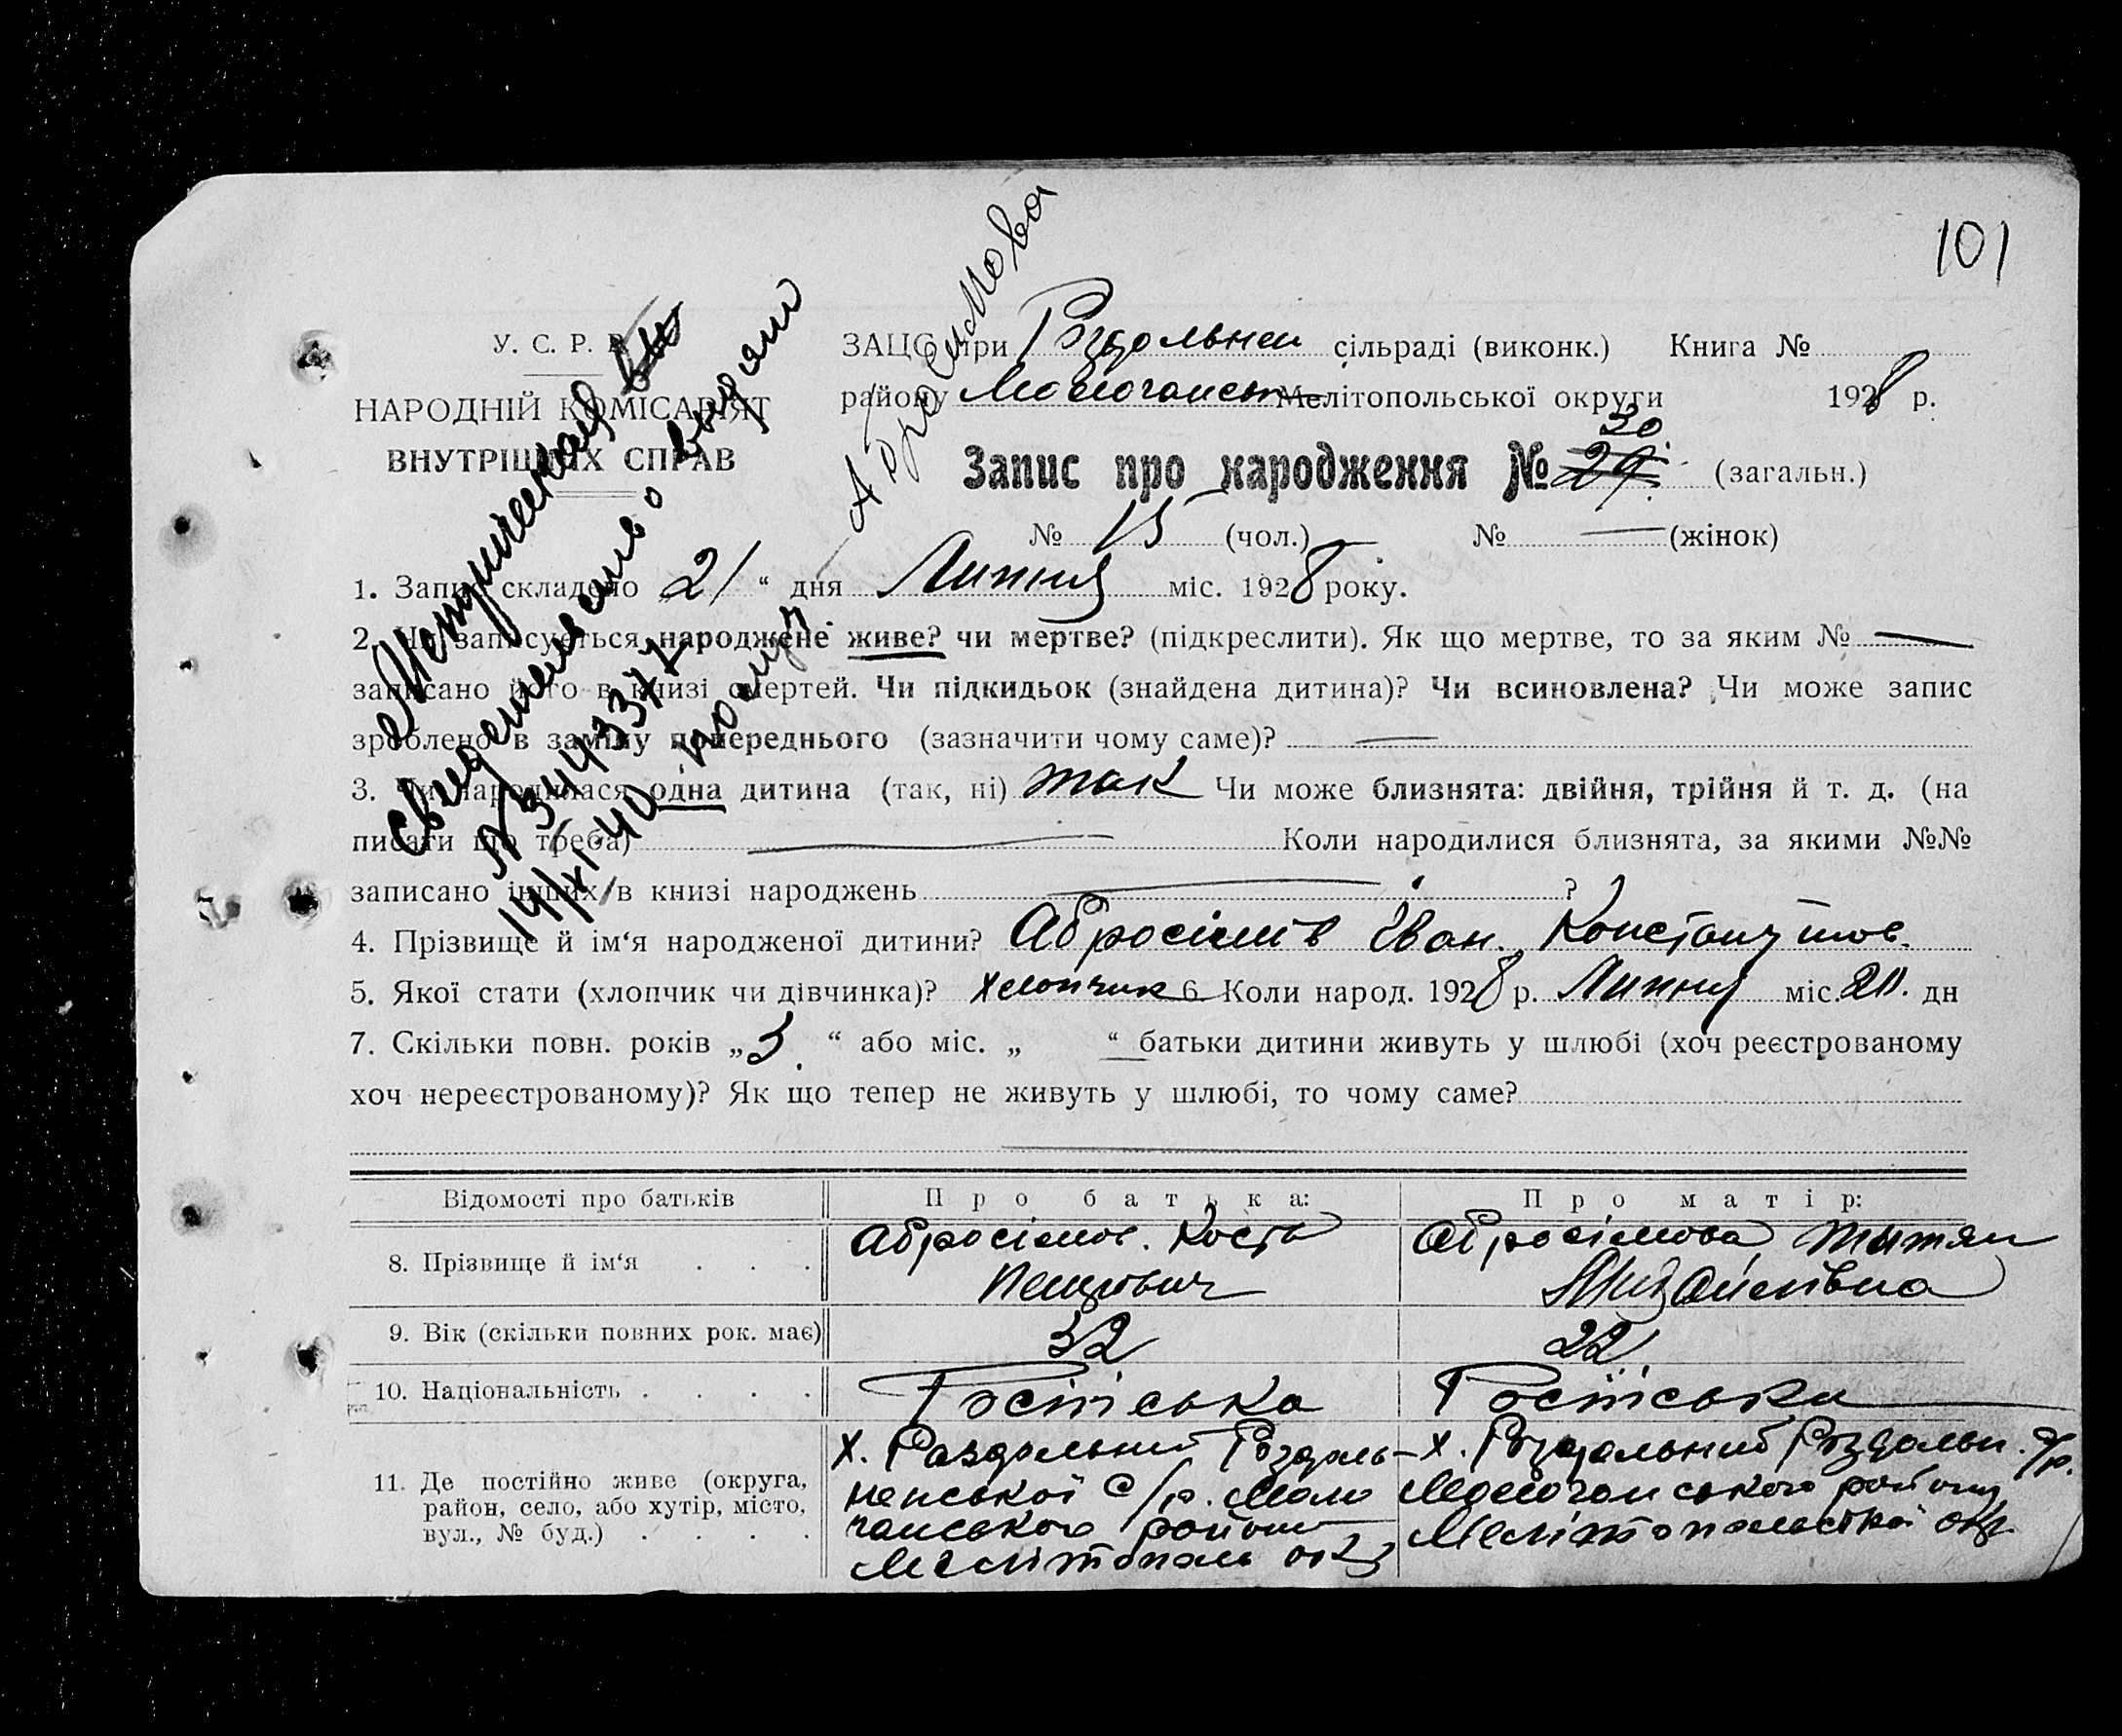 101
Абросимова
У. С. Р. Р.
НАРОДНІЙ КОМІСАРІЯТ
ВНУТРІШНІХ СПРАВ
ЗАЦС при Роздольнен сільраді (виконк.) Книга №
району Молочанськ Мелітопольської округи 1928 р.
30
Запис про народження № 29 (загальн.)
№ 15 (чол.) № — (жінок)
1. Запис складено 21 “ дня Липня міс. 1928 року.
2. Чи записується народжене живе? чи мертве? (підкреслити). Як що мертве, то за яким № —
записано його в книзі смертей. Чи підкидьок (знайдена дитина)? Чи всиновлена? Чи може запис
зроблено в заміну попереднього (зазначити чому саме)? —
3. Чи народилася одна дитина (так, ні) так Чи може близнята: двійня, трійня й т. д. (на
писати що треба) — Коли народилися близнята, за якими №№
записано інших в книзі народжень — ?
4. Прізвище й ім‘я народженої дитини? Абросімів Іван Константинов.
5. Якої стати (хлопчик чи дівчинка)? Хлопчик 6. Коли народ. 1928 р. Липня міс. 20. дн
7. Скільки повн. років „3 “ або міс. „ “ батьки дитини живуть у шлюбі (хоч реєстрованому
хоч нереєстрованому)? Як що тепер не живуть у шлюбі, то чому саме?
свидетельство выдано
№ 344337
14/XI 40
Відомості про батьків Про батька: Про матір:
8. Прізвище й ім‘я . . . Абросімов. Кость Абросімова Тытян
Петрович Михайлівна
9. Вік (скільки повних рок. має) 32 22
10. Національність . . . . Російська Російська
11. Де постійно живе (округа,
район, село, або хутір, місто,
вул., № буд.) . . . .
х. Раздольний Роздоль-
ненської с/р. Моло
чанського району
Мелітополь окр
х. Роздольний Роздольн. с/р.
Молочанського району
Мелітопольської окр.